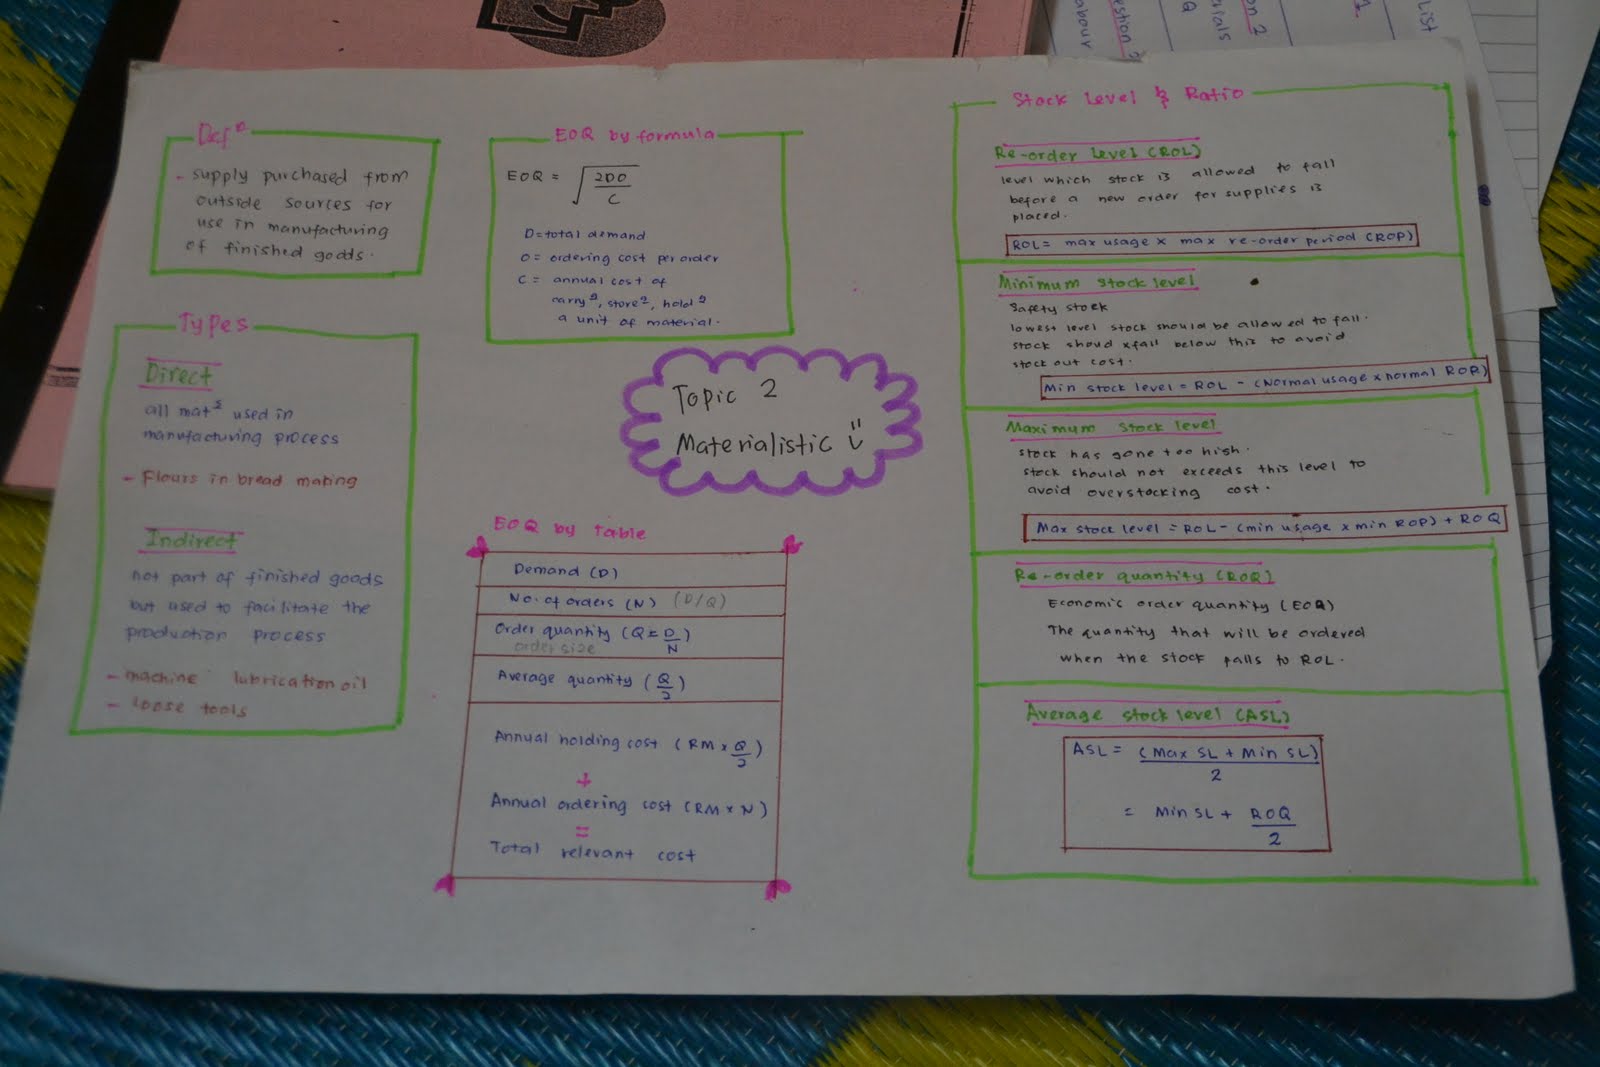 Defⁿ
- supply purchased from
outside sources for
use in manufacturing
of finished goods.
Types
Direct
all matˢ used in
manufacturing process
- Flours in bread making
Indirect
not part of finished goods
but used to facilitate the
production process
- machine lubrication oil
- loose tools
EOQ by formula
EOQ = √(2DO/C)
D = total demand
O = ordering cost per order
C = annual cost of
carryᵍ, storeᵍ, holdᵍ
a unit of material.
Topic 2
Materialistic
EOQ by Table
Demand (D)
No. of orders (N) (D/Q)
Order quantity (Q = D/N)
order size
Average quantity (Q/2)
Annual holding cost (RM x Q/2)
+
Annual ordering cost (RM x N)
=
Total relevant cost
Stock Level & Ratio
Re-order level (ROL)
level which stock is allowed to fall
before a new order for supplies is
placed.
ROL = max usage x max re-order period (ROP)
Minimum stock level
Safety stock
lowest level stock should be allowed to fall.
stock shoud x fall below this to avoid
stock out cost.
Min stock level = ROL - (Normal usage x normal ROP)
Maximum stock level
stock has gone too high.
stock should not exceeds this level to
avoid overstocking cost.
Max stock level = ROL - (min usage x min ROP) + ROQ
Re-order quantity (ROQ)
Economic order quantity (EOQ)
The quantity that will be ordered
when the stock falls to ROL.
Average stock level (ASL)
ASL = (Max SL + Min SL)/2
= Min SL + ROQ/2
List